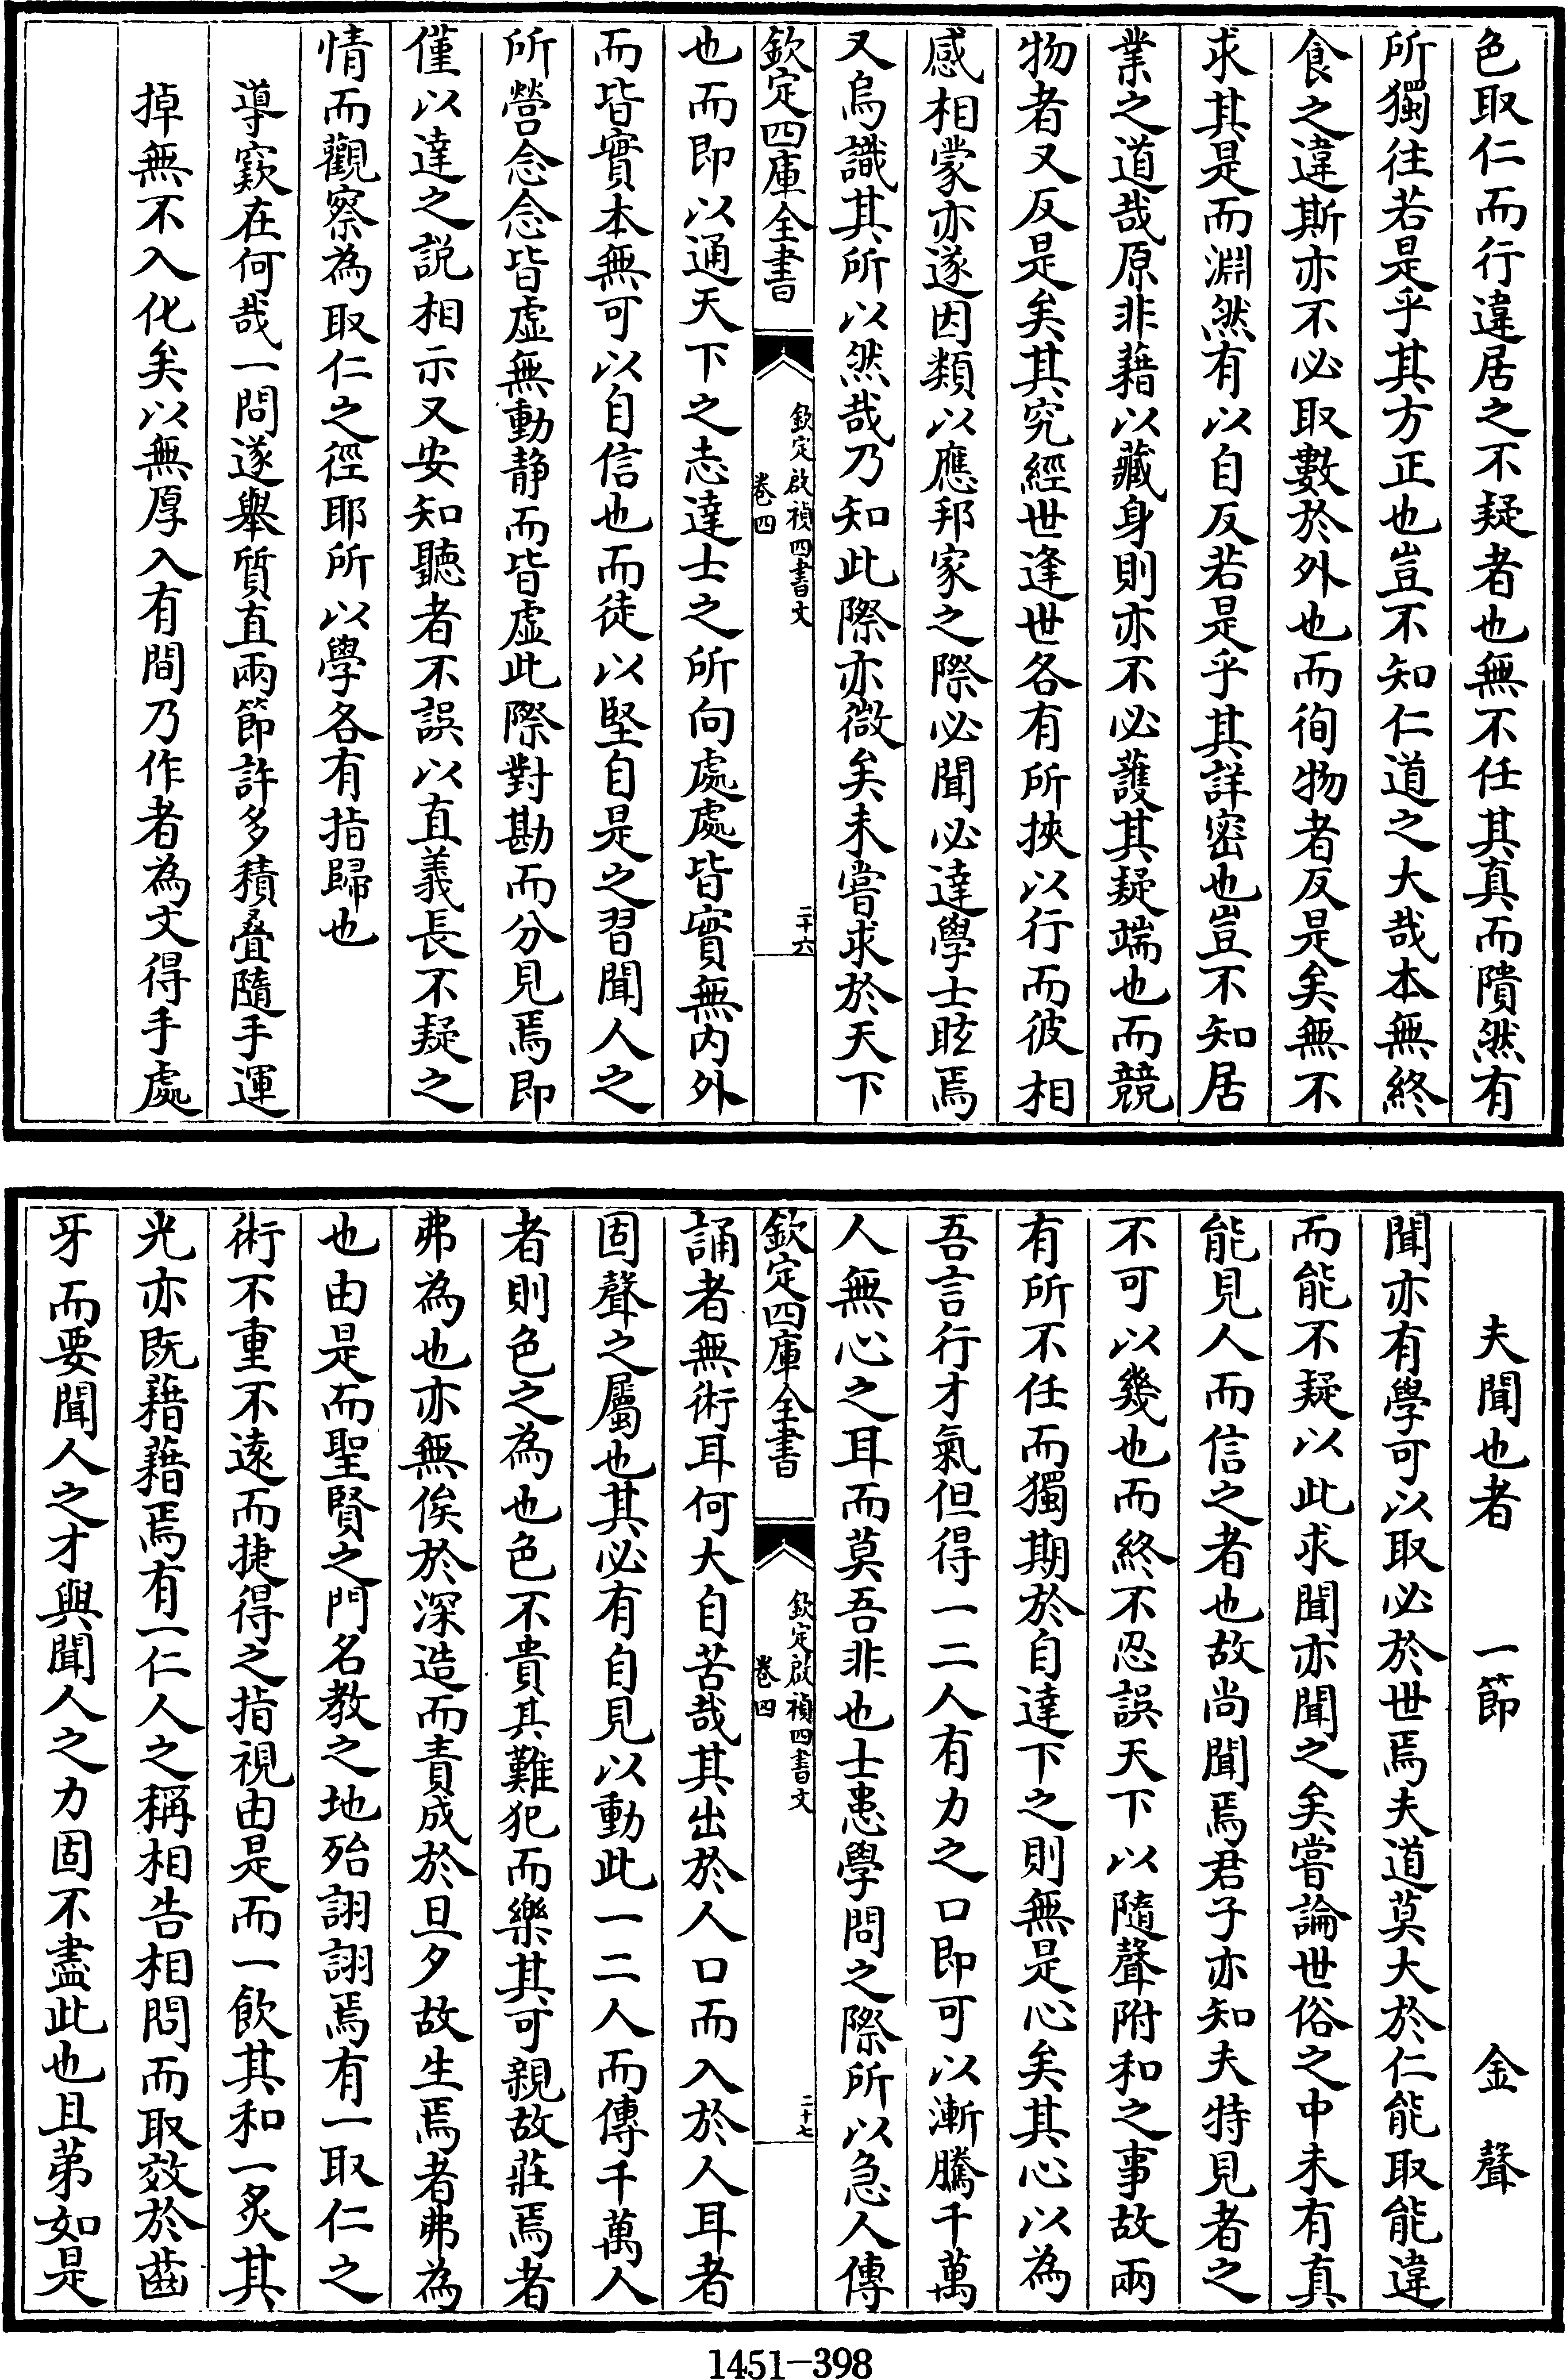 色取仁而行違居之不疑者也無不任其真而隤然有
所獨往若是乎其方正也豈不知仁道之大哉本無終
食之違斯亦不必取數於外也而徇物者反是矣無不
求其是而淵然有以自反若是乎其詳密也豈不知居
業之道哉原非藉以藏身則亦不必護其疑端也而競
物者又反是矣其究經世逢世各有所挾以行而彼相
感相蒙亦遂因類以應邦家之際必聞必達學士眩焉
又烏識其所以然哉乃知此際亦微矣未嘗求於天下
欽定四庫全書
欽定啟禎四書文
卷四
二十六
也而即以通天下之志達士之所向處處皆實無内外
而皆實本無可以自信也而徒以堅自是之習聞人之
所營念念皆虛無動静而皆虛此際對勘而分見焉即
僅以達之説相示又安知聽者不誤以直義長不疑之
情而觀察為取仁之徑耶所以學各有指歸也
導窾在何哉一問遂舉質直兩節許多積疊隨手運
掉無不入化矣以無厚入有間乃作者為文得手處
夫聞也者 一節 金聲
聞亦有學可以取必於世焉夫道莫大於仁能取能違
而能不疑以此求聞亦聞之矣嘗論世俗之中未有真
能見人而信之者也故尚聞焉君子亦知夫特見者之
不可以幾也而終不忍誤天下以隨聲附和之事故兩
有所不任而獨期於自達下之則無是心矣其心以為
吾言行才氣但得一二人有力之口即可以漸騰千萬
人無心之耳而莫吾非也士患學問之際所以急人傳
欽定四庫全書
欽定啟禎四書文
卷四
二十七
誦者無術耳何大自苦哉其出於人口而入於人耳者
固聲之屬也其必有自見以動此一二人而傳千萬人
者則色之為也色不貴其難犯而樂其可親故莊焉者
弗為也亦無俟於深造而責成於旦夕故生焉者弗為
也由是而聖賢之門名教之地殆詡詡焉有一取仁之
術不重不遠而捷得之指視由是而一飲其和一炙其
光亦既藉藉焉有一仁人之稱相告相問而取效於齒
牙而要聞人之才與聞人之力固不盡此也且苐如是
1451-398